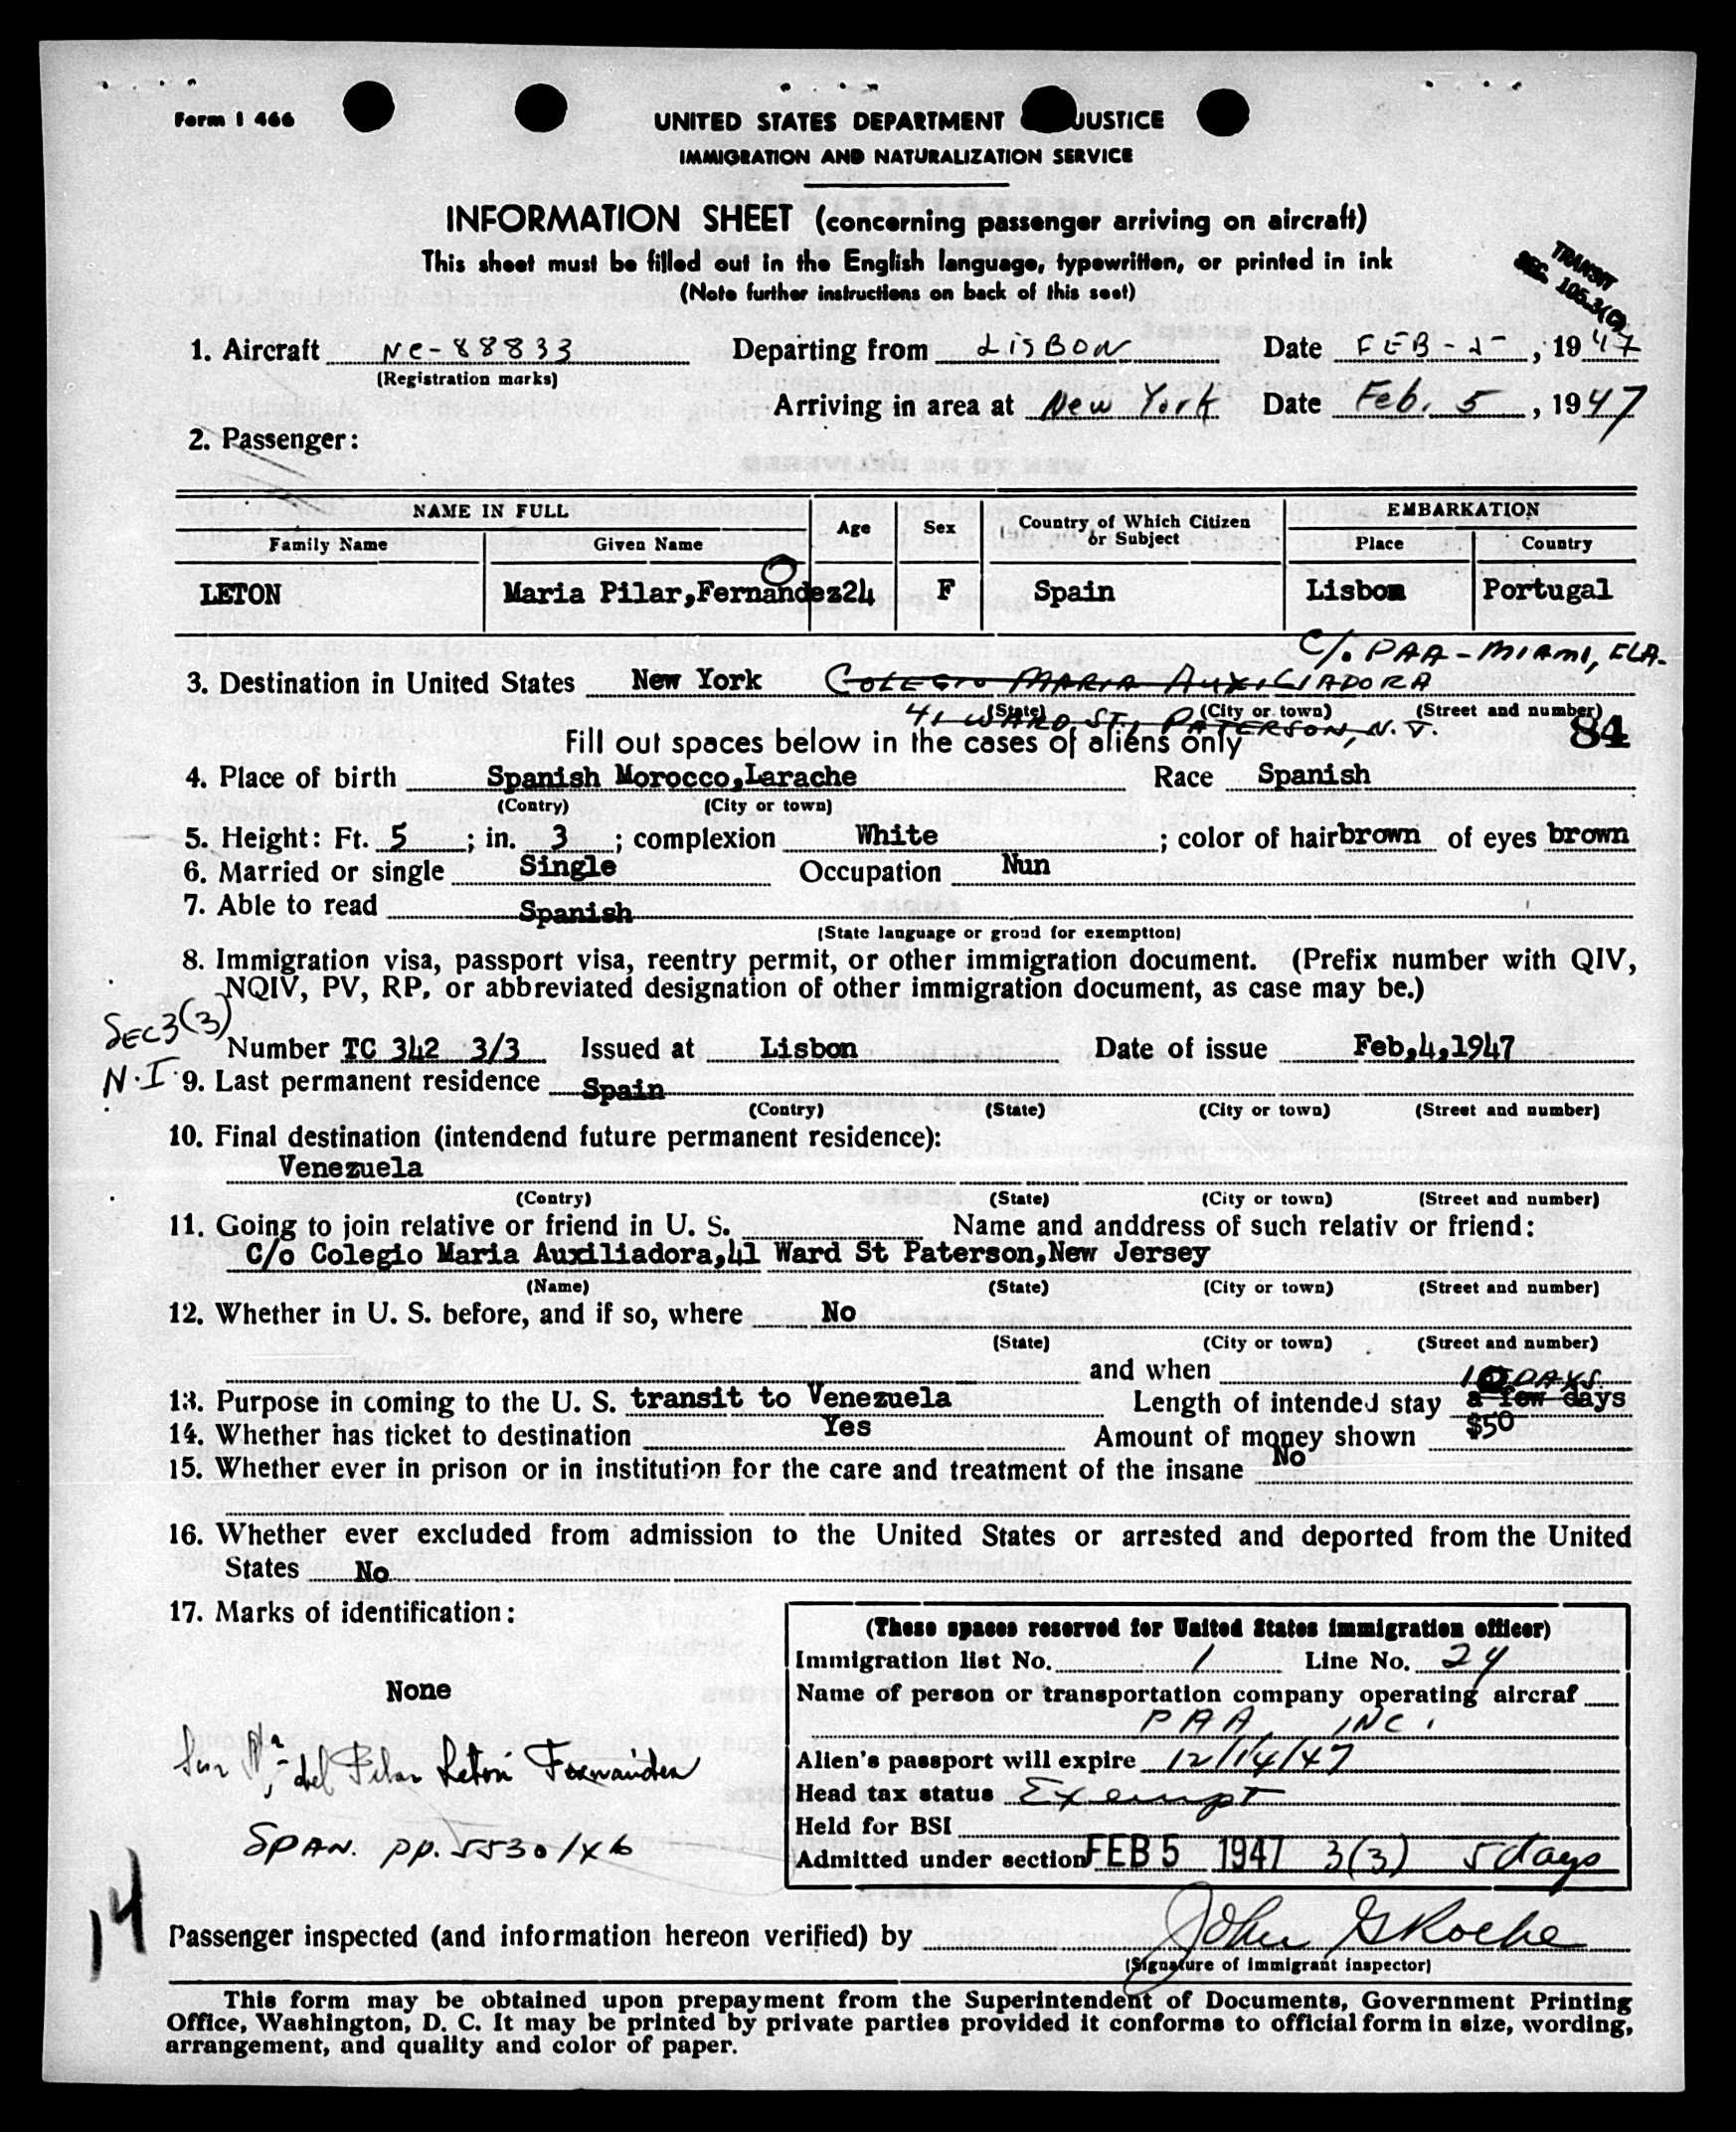 Form I 466
UNITED STATES DEPARTMENT JUSTICE
IMMIGRATION AND NATURALIZATION SERVICE
INFORMATION SHEET (concerning passenger arriving on aircraft)
This sheet must be filled out in the English language, typewritten, or printed in ink
(Note further instructions on back of this seet)
TRANSIT
SEC. 105.3(C)
1. Aircraft NC-88833 Departing from LISBON Date FEB-, 1947
(Registration marks)
Arriving in area at New York Date Feb. 5, 1947
2. Passenger:
NAME IN FULL Age Sex Country of Which Citizen or Subject EMBARKATION
Family Name Given Name Place Country
LETON Maria Pilar,Fernandez 24 F Spain Lisbon Portugal
C/o PAA-MIAMI, FLA.
3. Destination in United States New York COLEGIO MARIA AUXILIADORA
(State) (City or town) (Street and number)
41 WARD ST., PATERSON, N.J.
84
Fill out spaces below in the cases of aliens only
4. Place of birth Spanish Morocco,Larache Race Spanish
(Contry) (City or town)
5. Height: Ft. 5; in. 3; complexion White; color of hair brown of eyes brown
6. Married or single Single Occupation Nun
7. Able to read Spanish
(State language or groud for exemption)
8. Immigration visa, passport visa, reentry permit, or other immigration document. (Prefix number with QIV,
NQIV, PV, RP, or abbreviated designation of other immigration document, as case may be.)
SEC 3(3)
Number TC 342 3/3 Issued at Lisbon Date of issue Feb,4,1947
N.I.
9. Last permanent residence Spain
(Contry) (State) (City or town) (Street and number)
10. Final destination (intendend future permanent residence):
Venezuela
(Contry) (State) (City or town) (Street and number)
11. Going to join relative or friend in U. S. Name and anddress of such relativ or friend:
C/o Colegio Maria Auxiliadora,41 Ward St Paterson,New Jersey
(Name) (State) (City or town) (Street and number)
12. Whether in U. S. before, and if so, where No
(State) (City or town) (Street and number)
and when
DAYS
13. Purpose in coming to the U. S. transit to Venezuela Length of intended stay a few days
14. Whether has ticket to destination Yes Amount of money shown $50
15. Whether ever in prison or in institution for the care and treatment of the insane No
16. Whether ever excluded from admission to the United States or arrested and deported from the United
States No
17. Marks of identification:
None
Sor Ma del Pilar Letón Fernández
SPAN. PP. 5530/46
14
(These spaces reserved for United States immigration officer)
Immigration list No. 1 Line No. 24
Name of person or transportation company operating aircraf
PAA, INC.
Alien's passport will expire 12/14/47
Head tax status Exempt
Held for BSI
Admitted under section FEB 5 1947 3(3) 5 days
Passenger inspected (and information hereon verified) by John G Roche
(Signature of immigrant inspector)
This form may be obtained upon prepayment from the Superintendent of Documents, Government Printing
Office, Washington, D. C. It may be printed by private parties provided it conforms to official form in size, wording,
arrangement, and quality and color of paper.